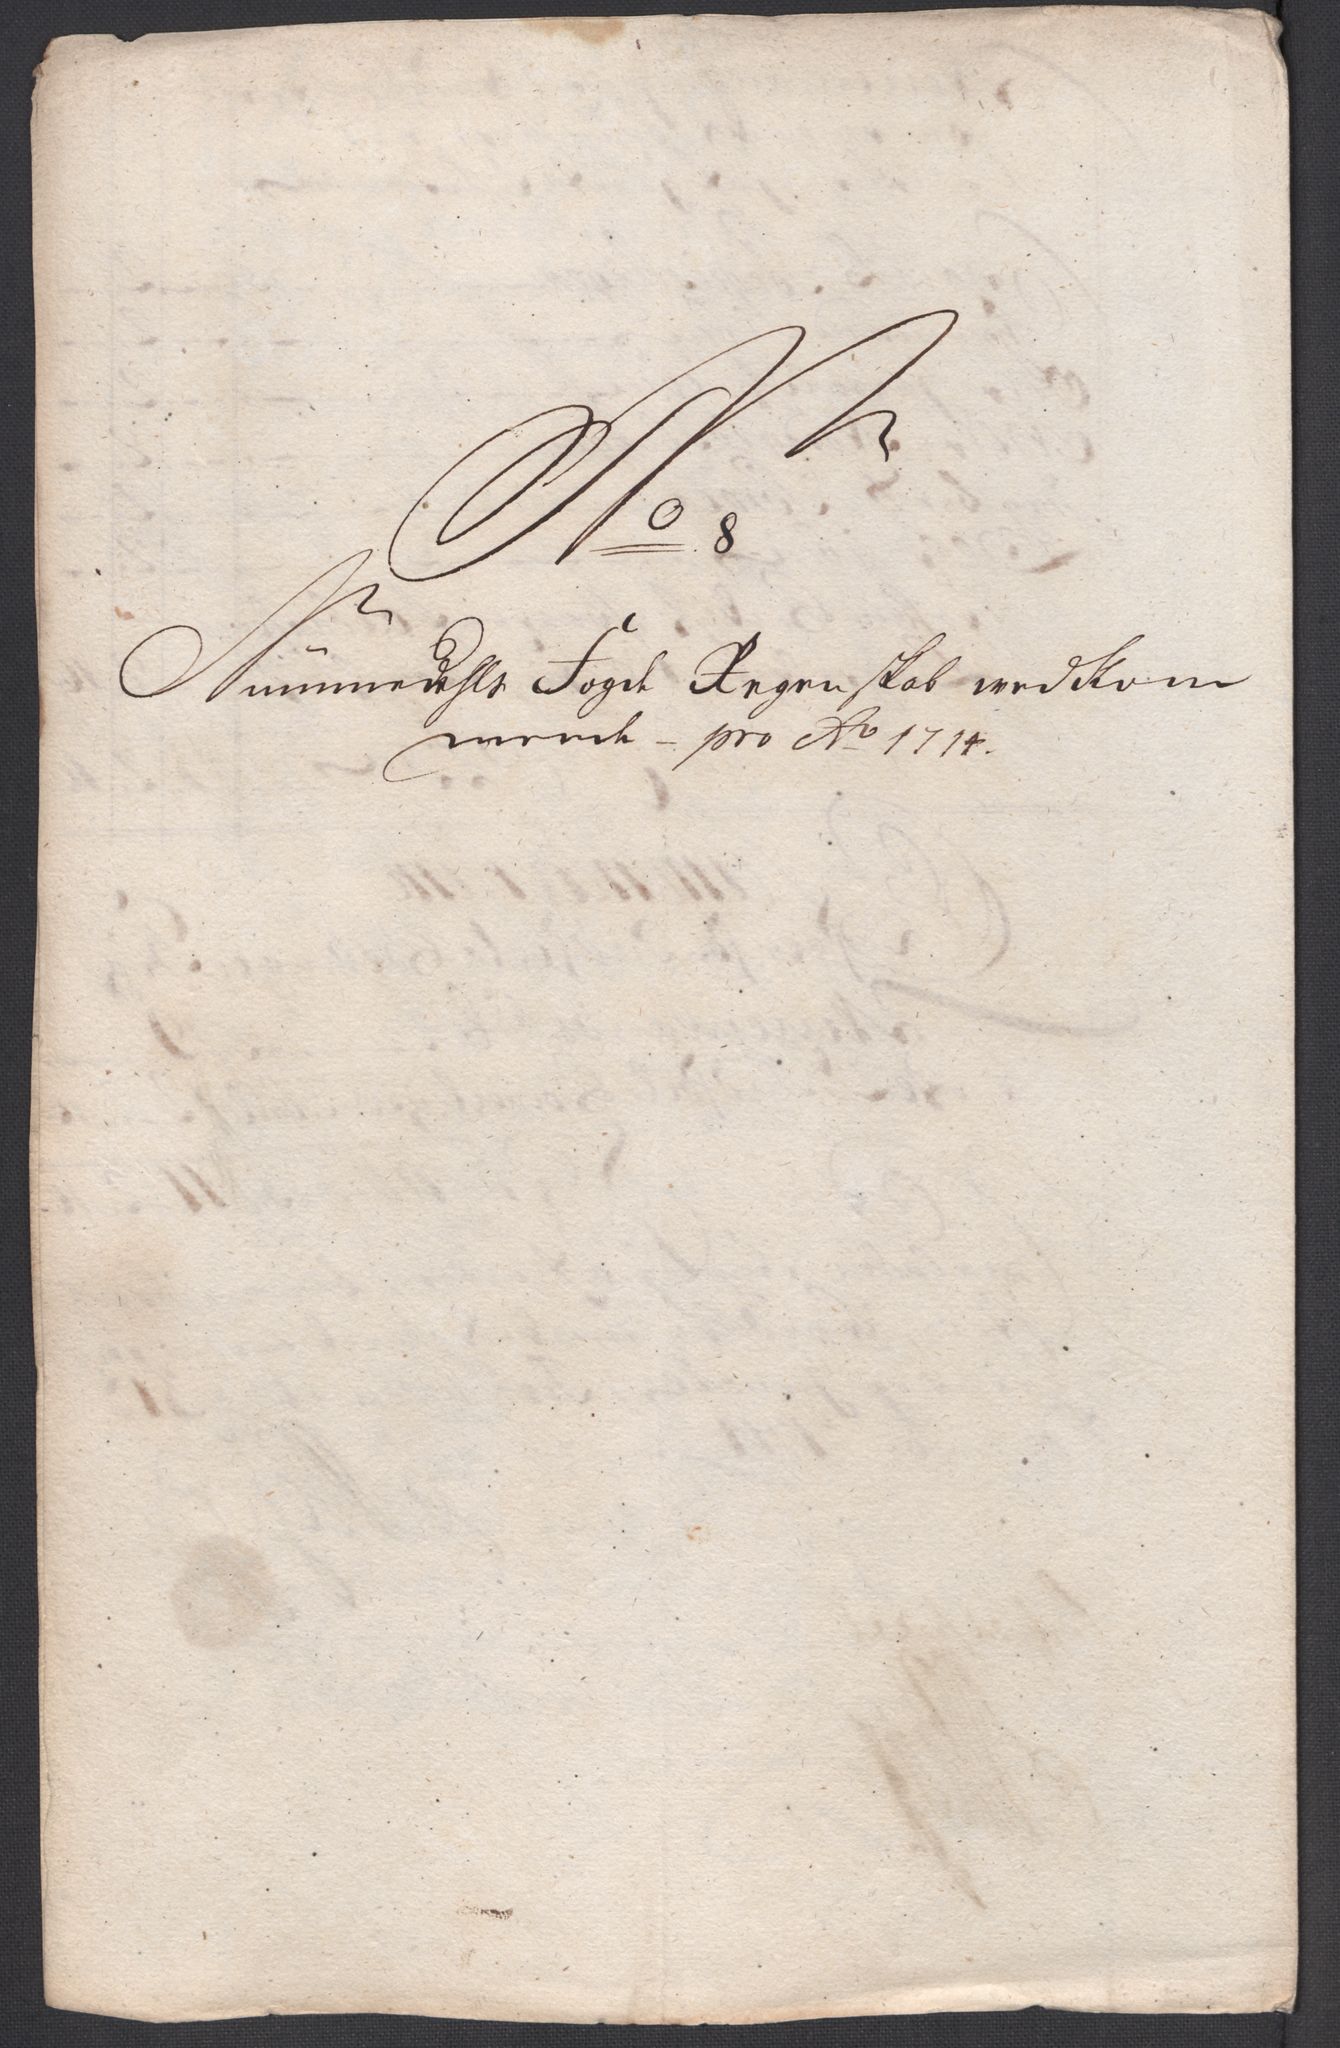 No 8
Nummedahls Fogde Regenskab wedkom
mende – pro Ao 1714.